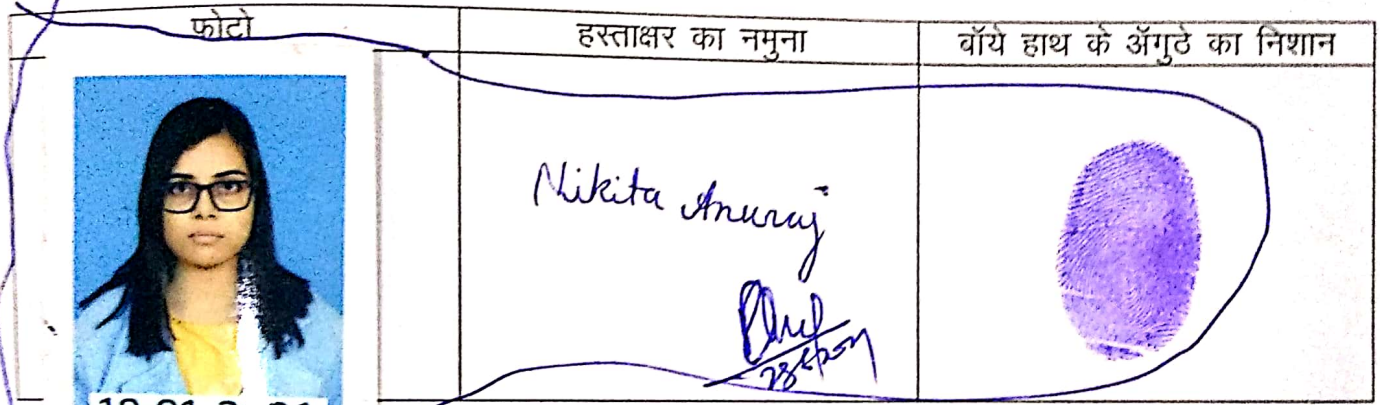 फोटो
हस्ताक्षर का नमुना
बॉये हाथ के अँगुठे का निशान
Nikita Anuraj